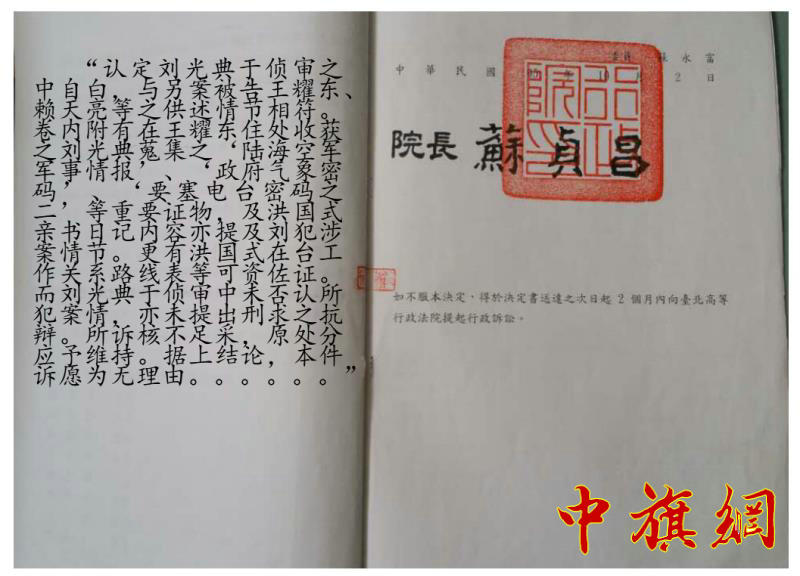 “认定刘光典于侦审之
中自白，与另案被告王耀东、
赖天亮等之供述情节相符。
卷内附有在王耀东住处收获
之刘光典蒐集之‘陆海空军
军事情报’、‘政府气象密
码’、‘重要塞电台密码之
二书等要证物，及洪国式
亲书日记。内容亦提及刘犯涉
案情节，更有洪国式在台工
作关系路线表等可资佐证。
而刘光典于侦审中未否认所
犯案情，亦未提出刑求之抗
辩。所诉核不足采，原处分
应予维持。据上结论，本件
诉愿为无理由。。。。。。”
委員 永富
中華民國 年10月2日
院長 蘇貞昌
如不服本決定，得於決定書送達之次日起2個月內向臺北高等
行政法院提起行政訴訟。
中旗網